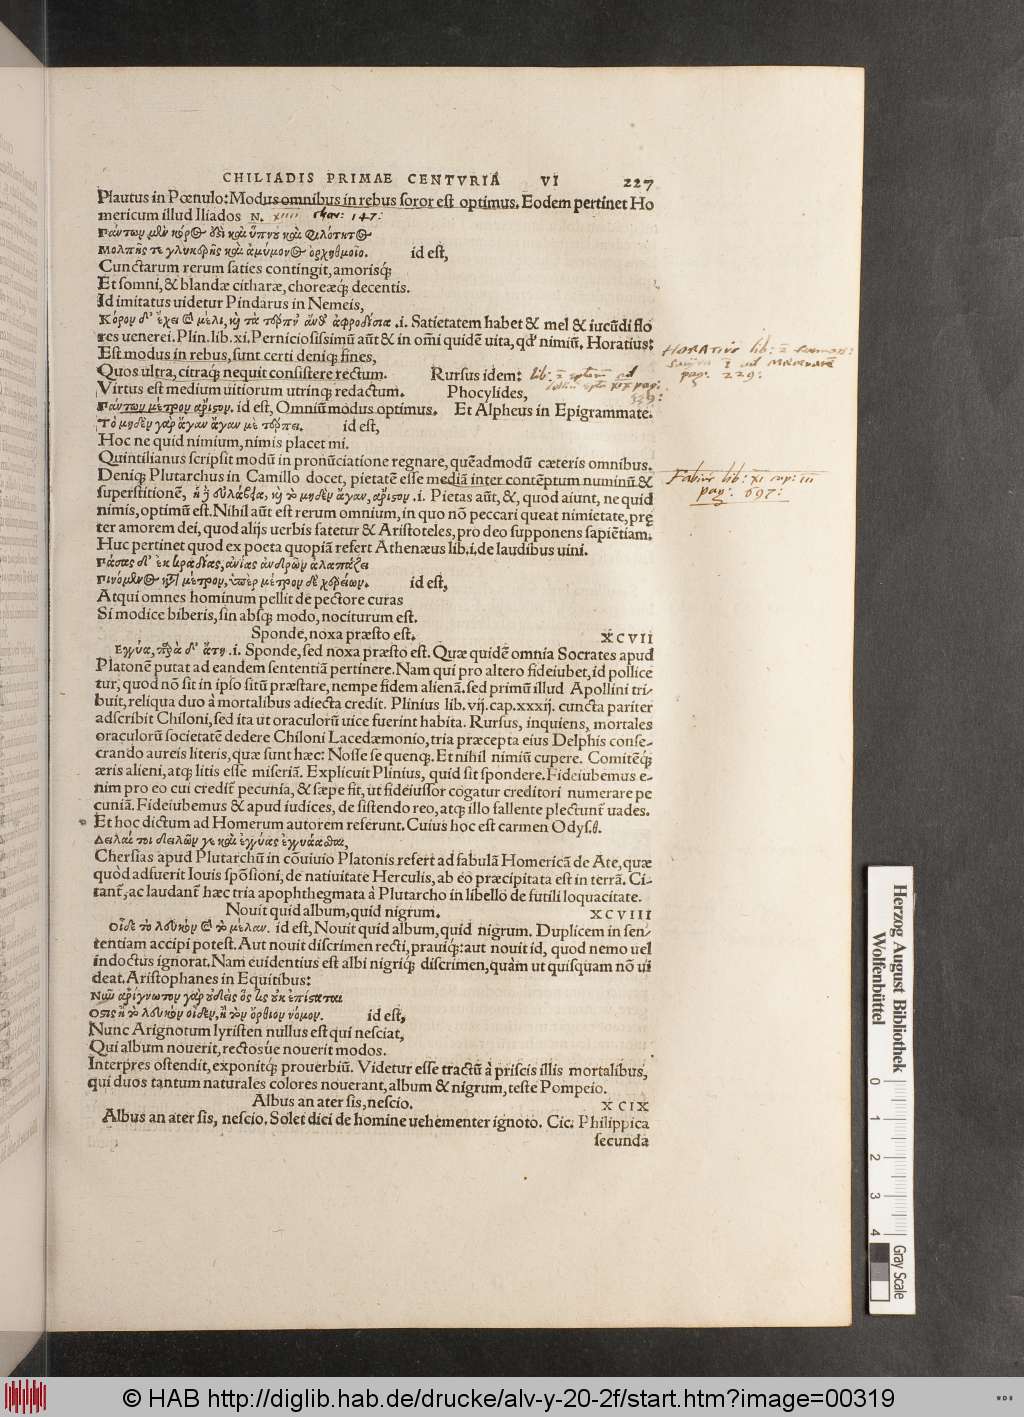 CHILIADIS PRIMAE CENTVRIA VI 227
Plautus in Pœnulo: Modus omnibus in rebus soror est optimus. Eodem pertinet Ho
mericum illud Iliados N. xiiii char: 147:
Πάντων μὲν κόρος ἐστὶ καὶ ὕπνου καὶ φιλότητος
Μολπῆς τε γλυκερῆς καὶ ἀμύμονος ὀρχηθμοῖο. id est,
Cunctarum rerum saties contingit, amorisq́;
Et somni, & blandæ citharæ, choreæq́; decentis.
Id imitatus uidetur Pindarus in Nemeis,
Κόρον δ' ἔχει καὶ μέλι, καὶ τὰ τερπν' ἄνθε' ἀφροδίσια .i. Satietatem habet & mel & iucūdi flo
res uenerei. Plin. lib. xi. Perniciosissimū aūt & in om̄i quidē uita, qd' nimiū. Horatius:
Est modus in rebus, sunt certi deniq; fines,
Quos ultra, citraq́; nequit consistere rectum. Rursus idem:
Virtus est medium uitiorum utrinq; redactum. Phocylides,
Πάντων μέτρον ἄριστον. id est, Omniū modus optimus. Et Alpheus in Epigrammate.
Τὸ μηδὲν γὰρ ἄγαν ἄγαν με τέρπει. id est,
Hoc ne quid nimium, nimis placet mi.
Quintilianus scripsit modū in pronūciatione regnare, quēadmodū cæteris omnibus.
Deniq; Plutarchus in Camillo docet, pietatē esse mediā inter contēptum numinū &
superstitionē, ἡ δ' εὐλάβεια, καὶ τὸ μηδὲν ἄγαν, ἄριστον .i. Pietas aūt, &, quod aiunt, ne quid
nimis, optimū est. Nihil aūt est rerum omnium, in quo nō peccari queat nimietate, prę
ter amorem dei, quod alijs uerbis fatetur & Aristoteles, pro deo supponens sapiētiam.
Huc pertinet quod ex poeta quopiā refert Athenæus lib. i. de laudibus uini.
Πάσας δ' ἐκ κραδίας, ἀνίας ἀνδρῶν ἀλαπάζει
Πινόμενος κατὰ μέτρον, ὑπὲρ μέτρον δὲ χερείων. id est,
Atqui omnes hominum pellit de pectore curas
Si modice biberis, sin absq; modo, nociturum est.
Sponde, noxa præsto est. XCVII
Εγγύα, πάρα δ' ἄτη .i. Sponde, sed noxa præsto est. Quæ quidē omnia Socrates apud
Platonē putat ad eandem sententiā pertinere. Nam qui pro altero fideiubet, id pollice
tur, quod nō sit in ipso sitū præstare, nempe fidem alienā. sed primū illud Apollini tri-
buit, reliqua duo à mortalibus adiecta credit. Plinius lib. vij. cap. xxxij. cuncta pariter
adscribit Chiloni, sed ita ut oraculorū uice fuerint habita. Rursus, inquiens, mortales
oraculorū societatē dedere Chiloni Lacedæmonio, tria præcepta eius Delphis conse-
crando aureis literis, quæ sunt hæc: Nosse se quenq;. Et nihil nimiū cupere. Comitēq́;
æris alieni, atq; litis esse miseriā. Explicuit Plinius, quid sit spondere. Fideiubemus e-
nim pro eo cui credit' pecunia, & sæpe fit, ut fideiussor cogatur creditori numerare pe
cuniā. Fideiubemus & apud iudices, de sistendo reo, atq; illo fallente plectunt' uades.
Et hoc dictum ad Homerum autorem referunt. Cuius hoc est carmen Odys. θ.
Δειλαί τοι δειλῶν γε καὶ ἐγγύαι ἐγγυάασθαι,
Chersias apud Plutarchū in cōuiuio Platonis refert ad fabulā Homericā de Ate, quæ
quòd adfuerit Ioui spōsioni, de natiuitate Herculis, ab eo præcipitata est in terrā. Ci-
tant', ac laudant' hæc tria apophthegmata à Plutarcho in libello de futili loquacitate.
Nouit quid album, quid nigrum. XCVIII
Οἶδε τὸ λευκὸν καὶ τὸ μέλαν. id est, Nouit quid album, quid nigrum. Duplicem in sen-
tentiam accipi potest. Aut nouit discrimen recti, prauiq́;: aut nouit id, quod nemo uel
indoctus ignorat. Nam euidentius est albi nigriq́; discrimen, quàm ut quisquam nō ui
deat. Aristophanes in Equitibus:
Νῦν ἀρίγνωτον γὰρ οὐδεὶς ὅς τις οὐκ ἐπίσταται
Οστις ἢ τὸ λευκὸν οἶδεν, ἢ τὸν ὄρθιον νόμον. id est,
Nunc Arignotum lyristen nullus est qui nesciat,
Qui album nouerit, rectosúe nouerit modos.
Interpres ostendit, exponitq́; prouerbiū. Videtur esse tractū à priscis illis mortalibus,
qui duos tantum naturales colores nouerant, album & nigrum, teste Pompeio.
Albus an ater sis, nescio. XCIX
Albus an ater sis, nescio. Solet dici de homine uehementer ignoto. Cic. Philippica
secunda
HORATIUS lib: 2
pag: 229:
Fabius lib: XI cap: III
pag: 697:
Herzog August Bibliothek
Wolfenbüttel
0 1 2 3 4
Gray Scale
© HAB http://diglib.hab.de/drucke/alv-y-20-2f/start.htm?image=00319